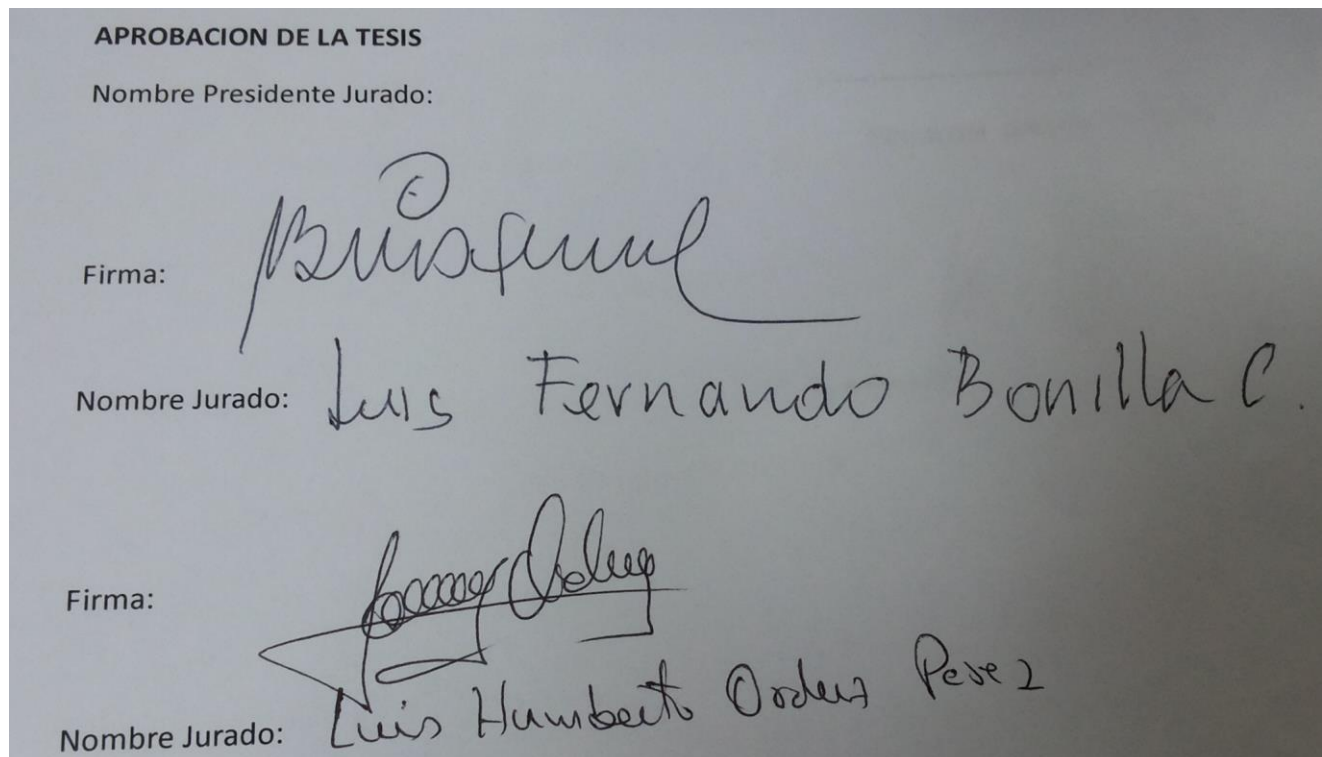 APROBACION DE LA TESIS
Nombre Presidente Jurado:
Firma:
Nombre Jurado: Luis Fernando Bonilla C.
Firma:
Nombre Jurado: Luis Humberto Perez